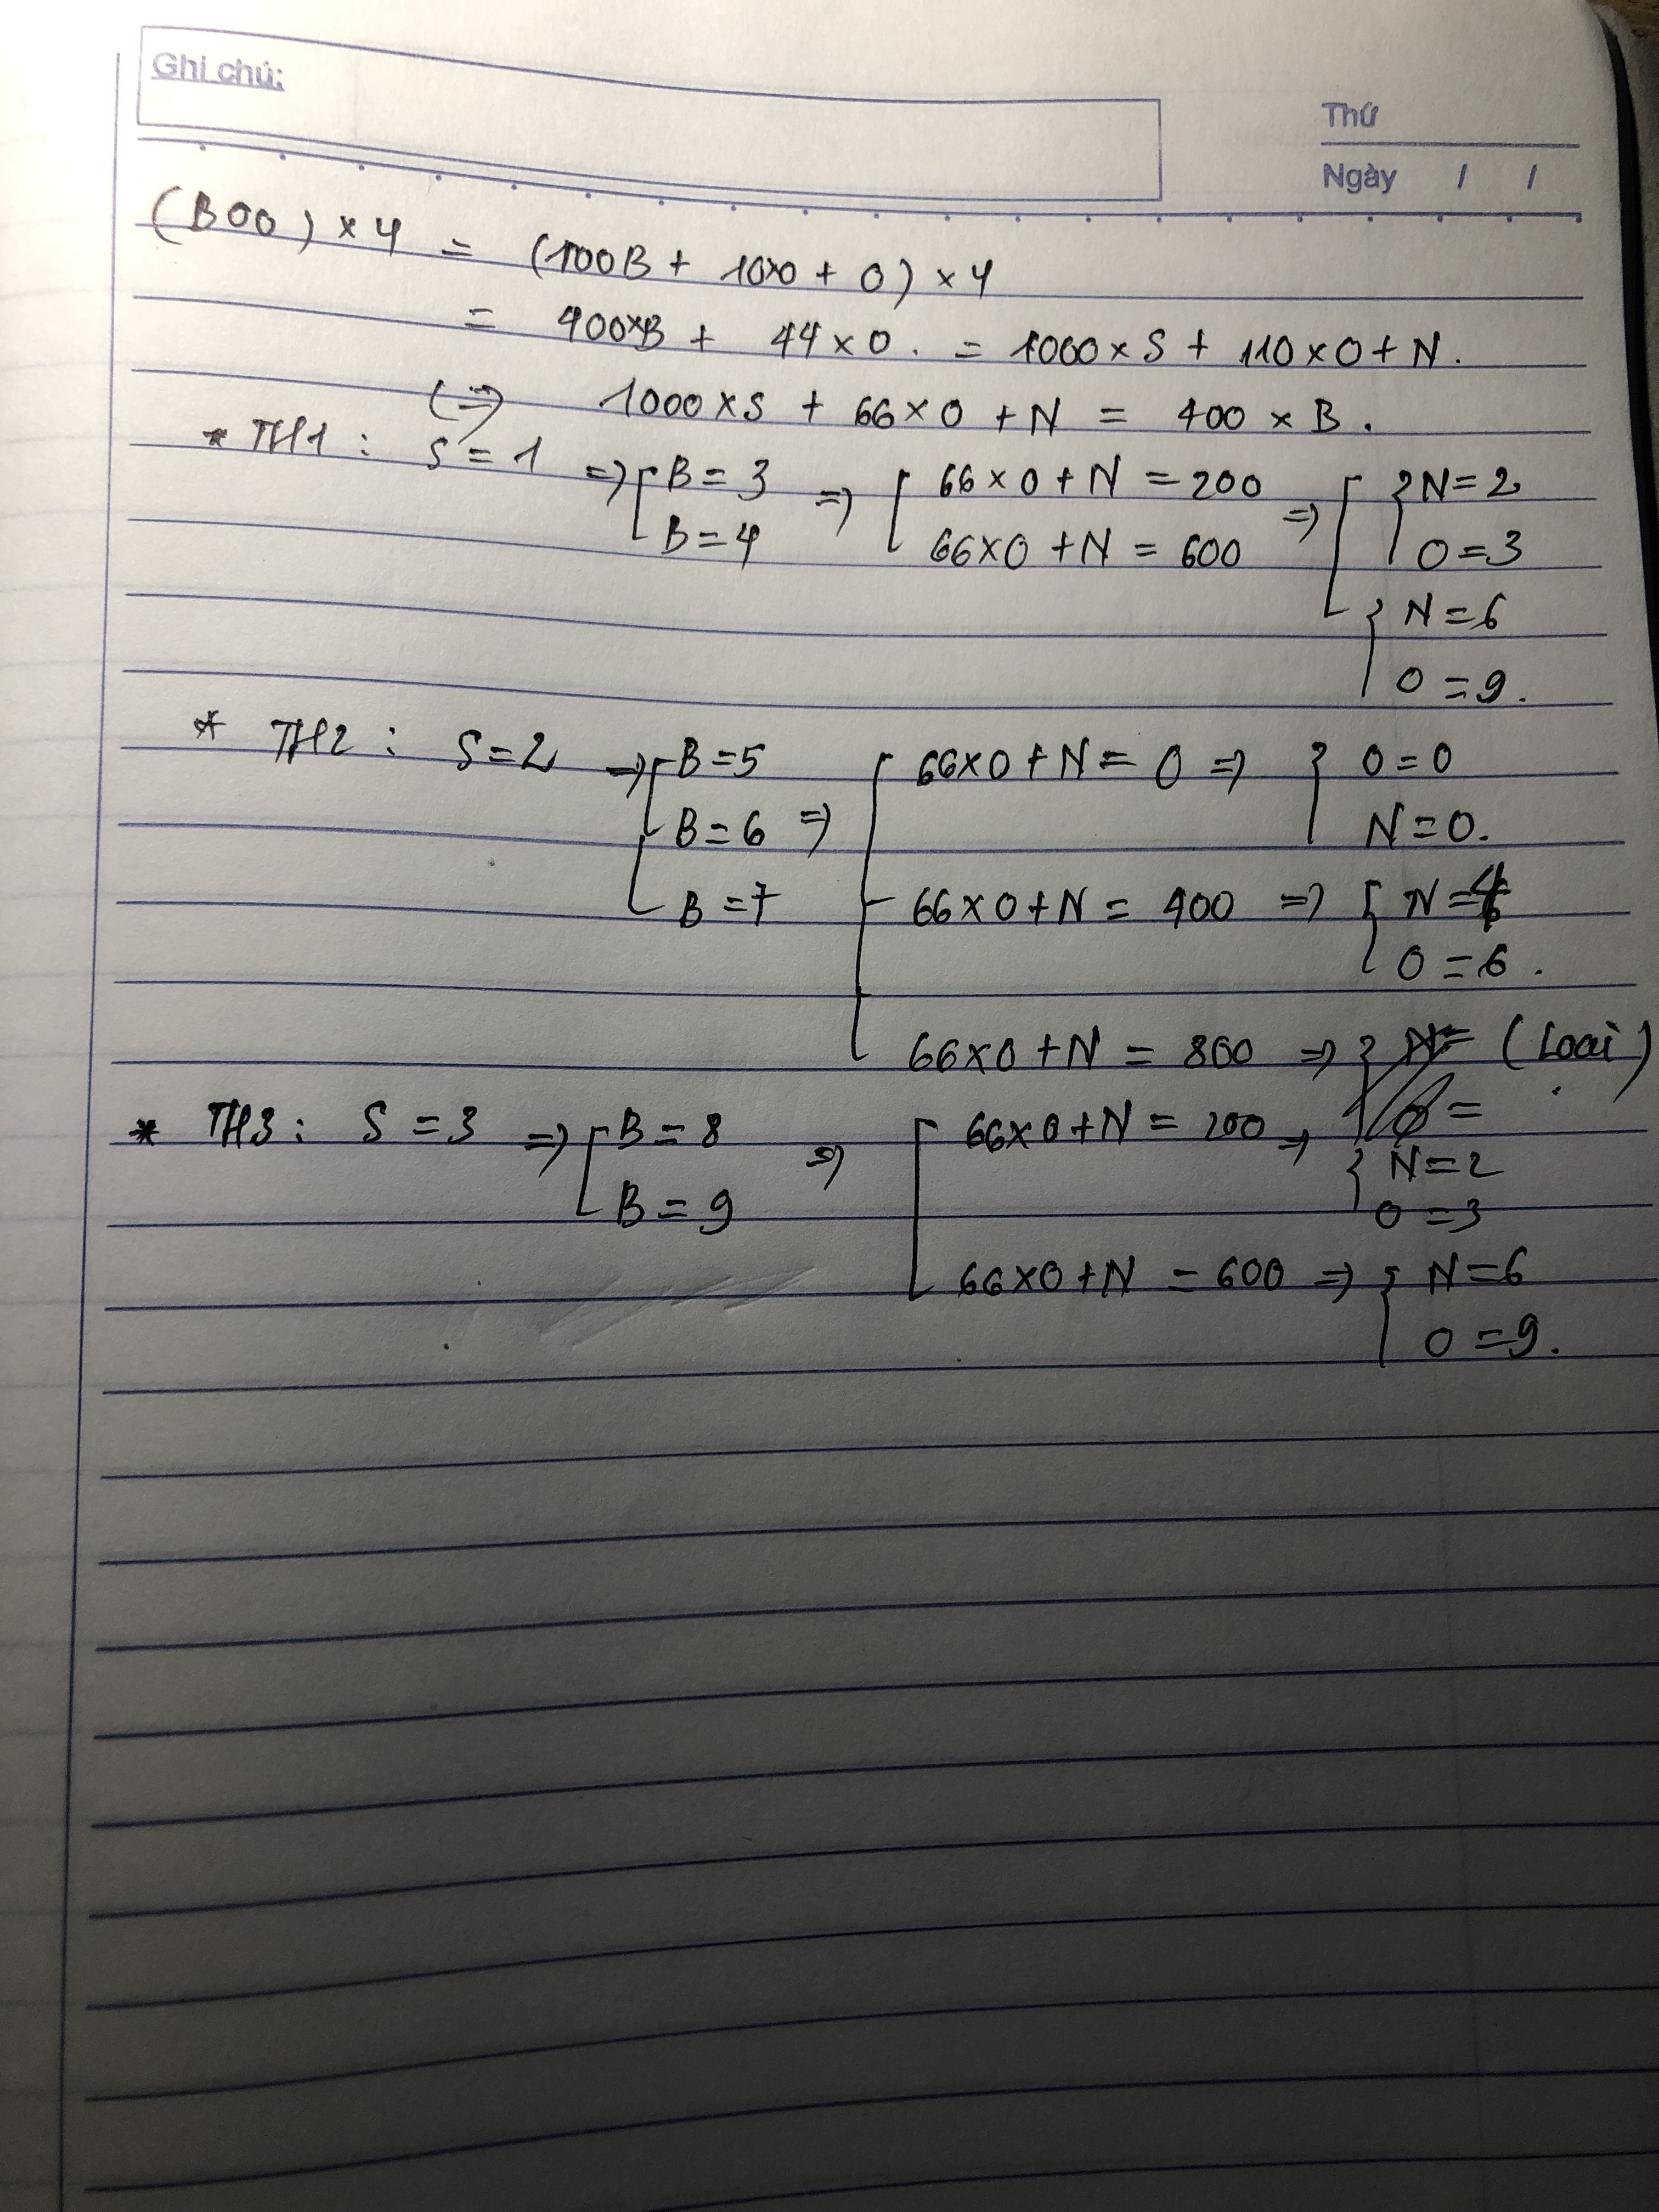 Ghi chú:
Thứ
Ngày / /
(BOO) × 4 = (100B + 10×O + O) × 4
= 400×B + 44 × O. = 1000 × S + 110 × O + N.
(=) 1000 × S + 66 × O + N = 400 × B.
* TH1 : S = 1 => [ B = 3 => [ 66 × O + N = 200 => [ { N = 2
B = 4 66 × O + N = 600 O = 3
{ N = 6
O = 9.
* TH2 : S = 2 => [ B = 5 [ 66×O + N = 0 => { O = 0
B = 6 => N = 0.
B = 7 66 × O + N = 400 => { N = 4
O = 6.
66×O + N = 800 => (Loại)
* TH3 : S = 3 => [ B = 8 => [ 66×O + N = 200 => { N = 2
B = 9 O = 3
66×O + N = 600 => { N = 6
O = 9.